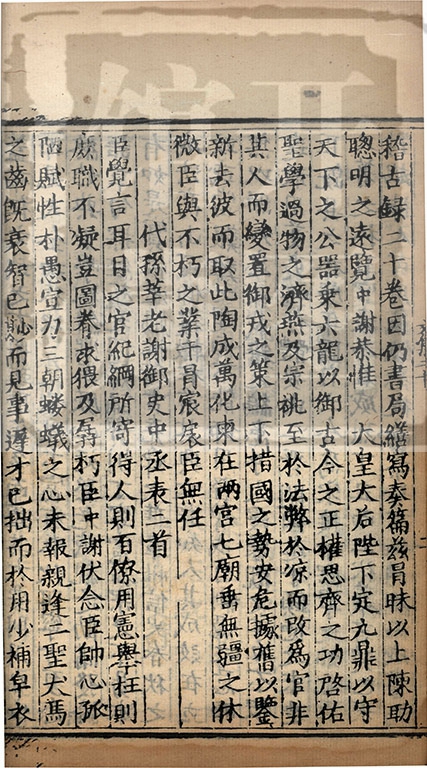 稽古録二十卷因仍書局繕寫奏篇兹冐昧以上陳助
聰明之逺覽中謝恭惟 大皇大后陛下定九鼎以守
天下之公器乗六龍以御古今之正權思齊之功啓佑
聖學過物之濟燕及宗祧至於法弊於凉而改為官非
其人而變置御戎之策上下措國之勢安危據舊以鑒
新去彼而取此陶成萬化束在兩宫七廟垂無疆之休
微臣與不朽之業干冐宸扆臣無任
代孫莘老謝御史中丞表二首
臣覺言耳目之官紀綱所寄得人則百僚用憲舉枉則
庶職不凝豈圖眷求猥及孱朽臣中謝伏念臣師心孤
陋賦性朴愚宣力三朝螻蟻之心未報親逢二聖犬馬
之齒旣衰智已 而見事遲才已拙而於用少補皁衣